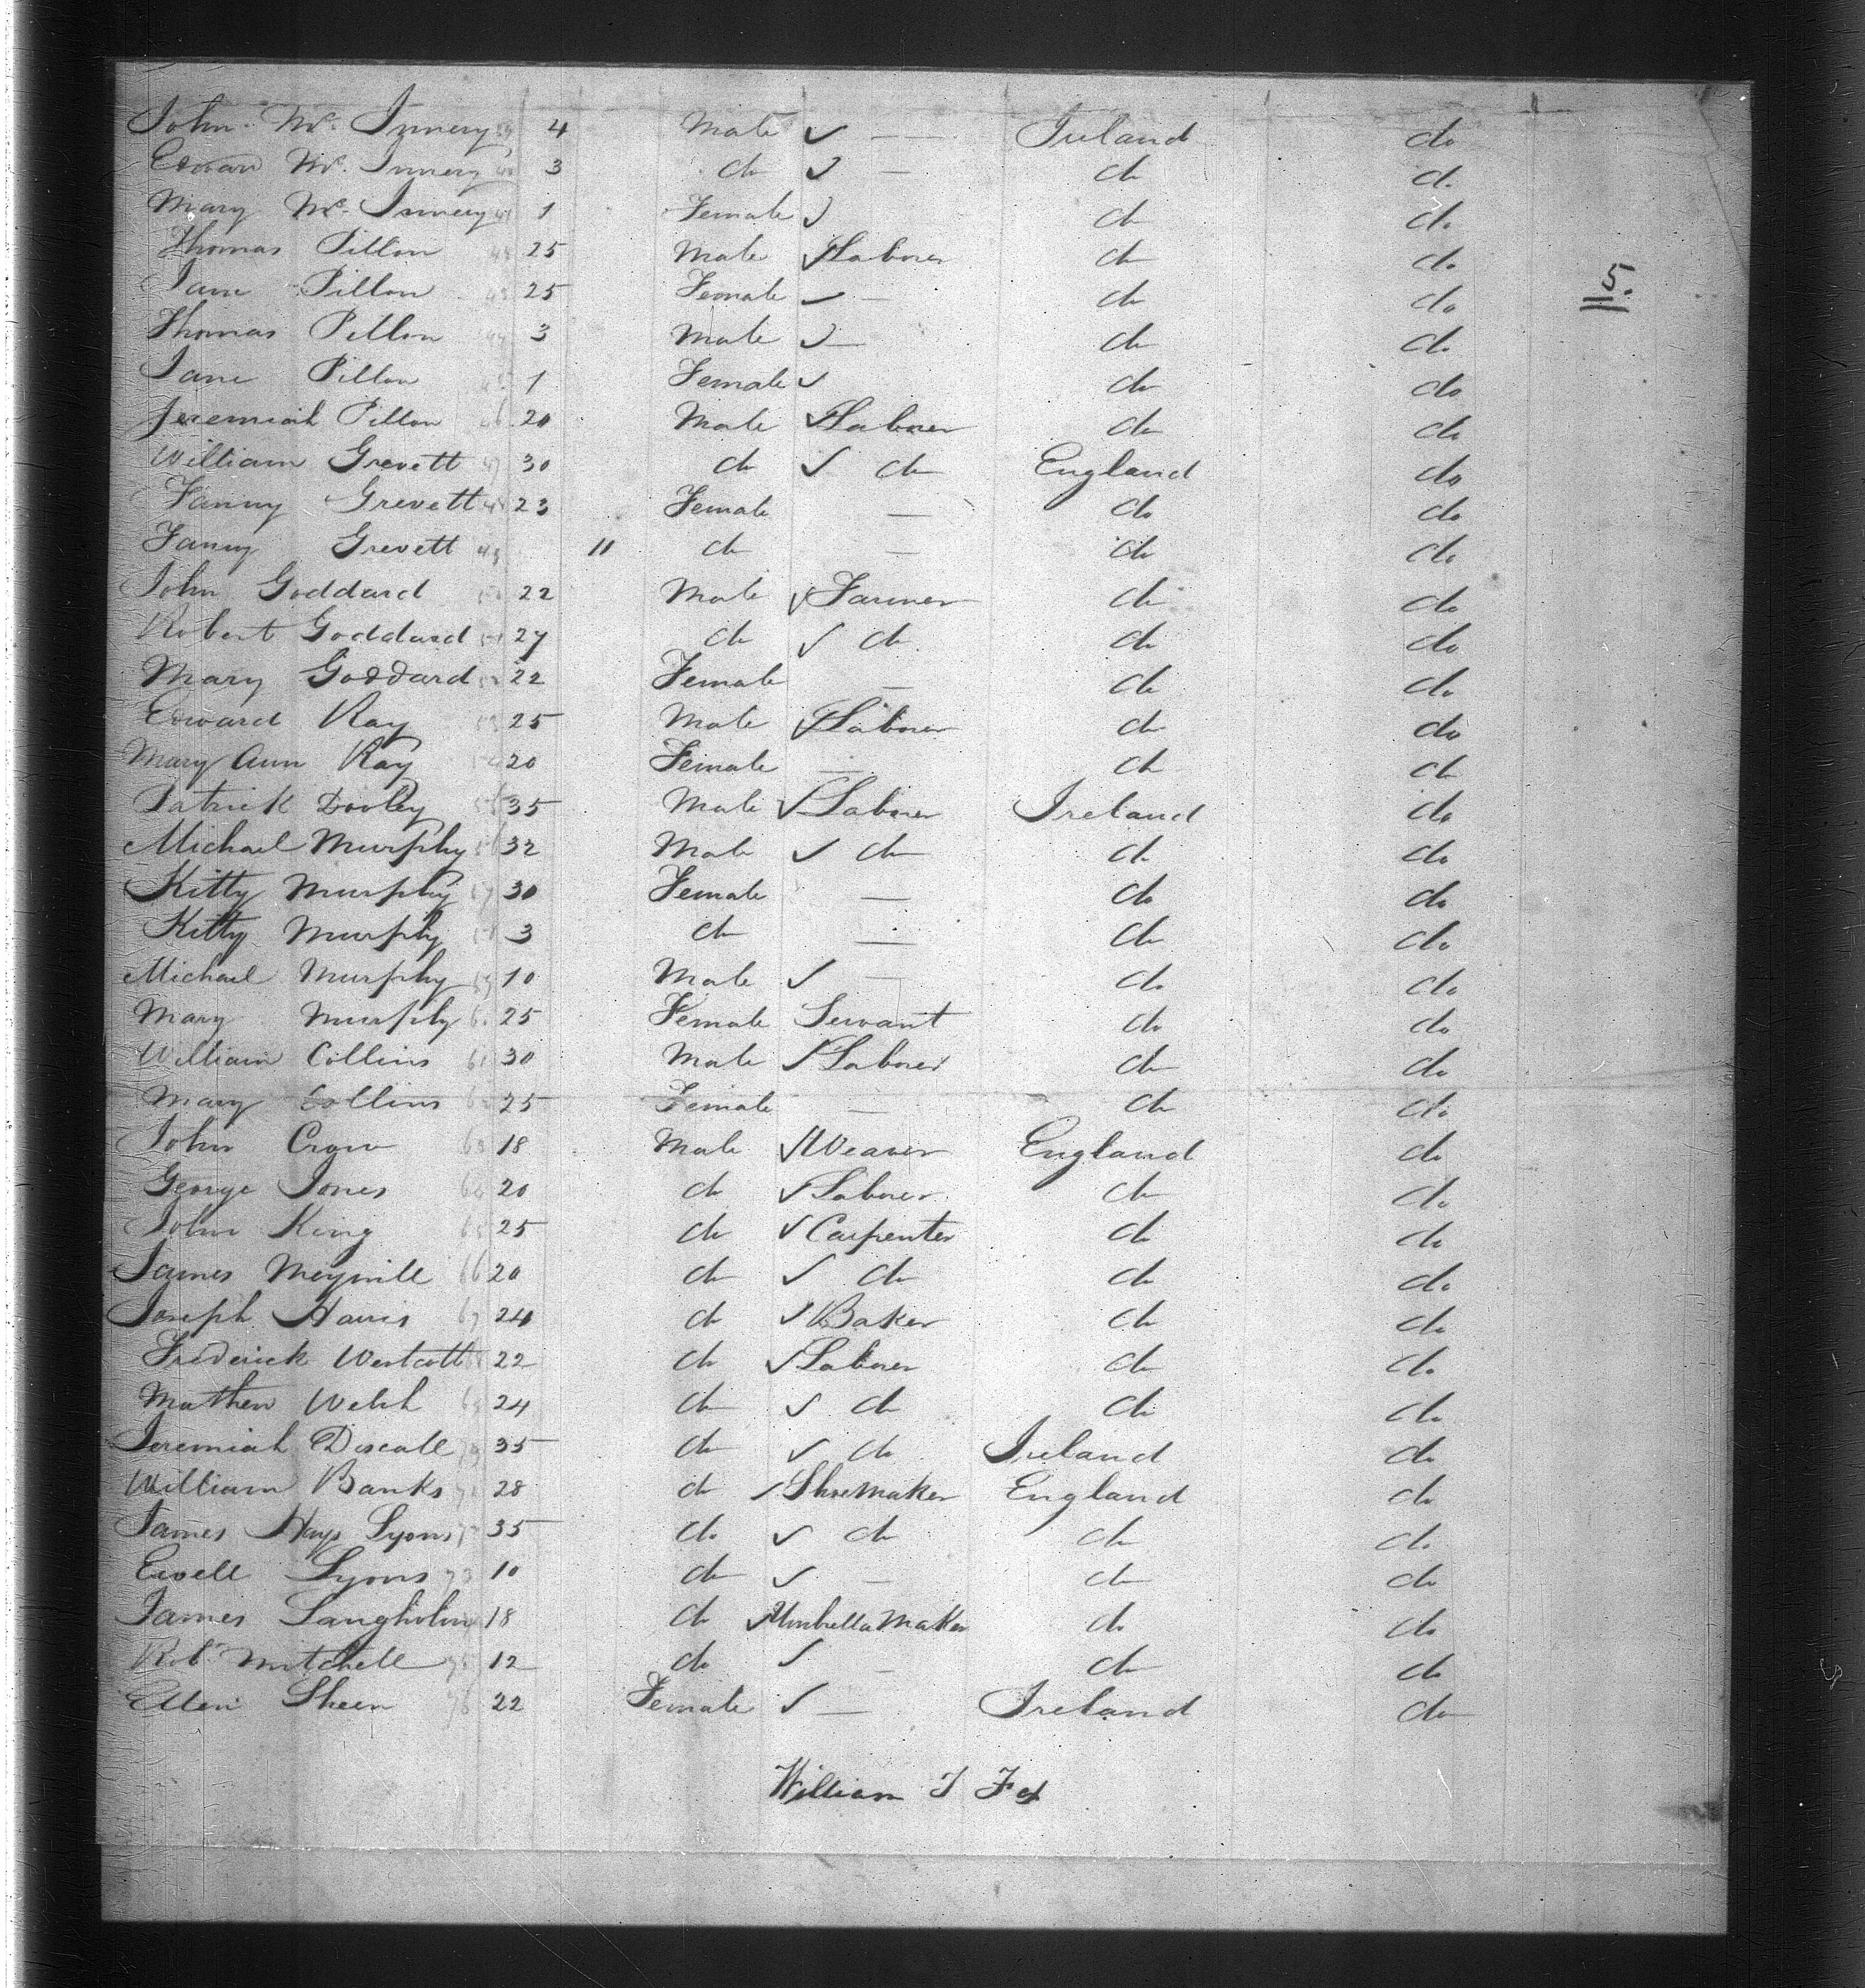 John Mc. Innery 39 4 Male ✓ — — Ireland do
Edward Mc. Innery 40 3 do ✓ — do do
Mary Mc. Innery 41 1 Female ✓ do do
Thomas Pillon 42 25 Male ✓ Laborer do do
5.
Jane Pillon 43 25 Female ✓ — do do
Thomas Pillon 44 3 Male ✓ — do do
Jane Pillon 45 1 Female ✓ do do
Jeremiah Pillon 46 20 Male ✓ Laborer do do
William Grevett 47 30 do ✓ do England do
Fanny Grevett 48 23 Female — do do
Fanny Grevett 49 11 do — do do
John Goddard 50 22 Male ✓ Farmer do do
Robert Goddard 51 27 do ✓ do do do
Mary Goddard 52 22 Female — do do
Edward Ray 53 25 Male ✓ Laborer do do
Mary Ann Ray 54 20 Female — do do
Patrick Dooley 55 35 Male ✓ Laborer Ireland do
Michael Murphy 56 32 Male ✓ do do do
Kitty Murphy 57 30 Female — do do
Kitty Murphy 58 3 do — do do
Michael Murphy 59 10 Male ✓ — do do
Mary Murphy 60 25 Female Servant do do
William Collins 61 30 Male ✓ Laborer do do
Mary Collins 62 25 Female — do do
John Crow 63 18 Male ✓ Weaver England do
George Jones 64 20 do ✓ Laborer do do
John King 65 25 do ✓ Carpenter do do
James 66 20 do ✓ do do do
Joseph Harris 67 24 do ✓ Baker do do
Frederick Westcott 68 22 do ✓ Laborer do do
Mathew Welch 69 24 do ✓ do do do
Jeremiah Discall 70 35 do ✓ do Ireland do
William Banks 71 28 do ✓ Shoemaker England do
James Hays Lyons 72 35 do ✓ do do do
Ewell Lyons 73 10 do ✓ — do do
James Langholm 74 18 do ✓ Umbrella Maker do do
Rob. Mitchell 75 12 do ✓ — do do
Ellen Sheen 76 22 Female ✓ — Ireland do
William